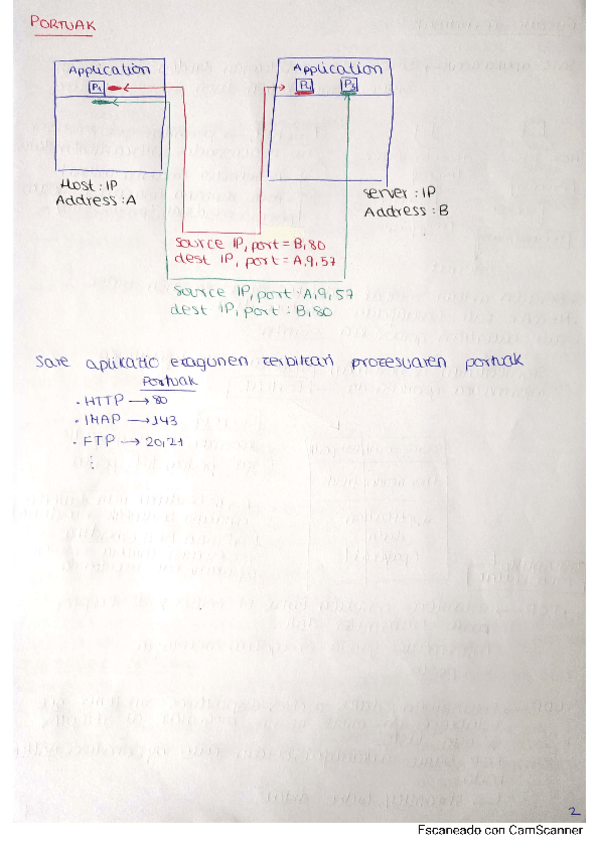 PORTUAK
Application
P1
Application
P2
P3
Host : IP
Address : A
Server : IP
Address : B
source IP, port = B, 80
dest IP, port = A, 9,57
source IP, port : A, 9, 57
dest IP, port : B, 80
Sare aplikazio ezagunen zerbitzari prozesuaren portuak
Portuak
· HTTP → 80
· IMAP → 143
· FTP → 20,21
⋮
2
Escaneado con CamScanner